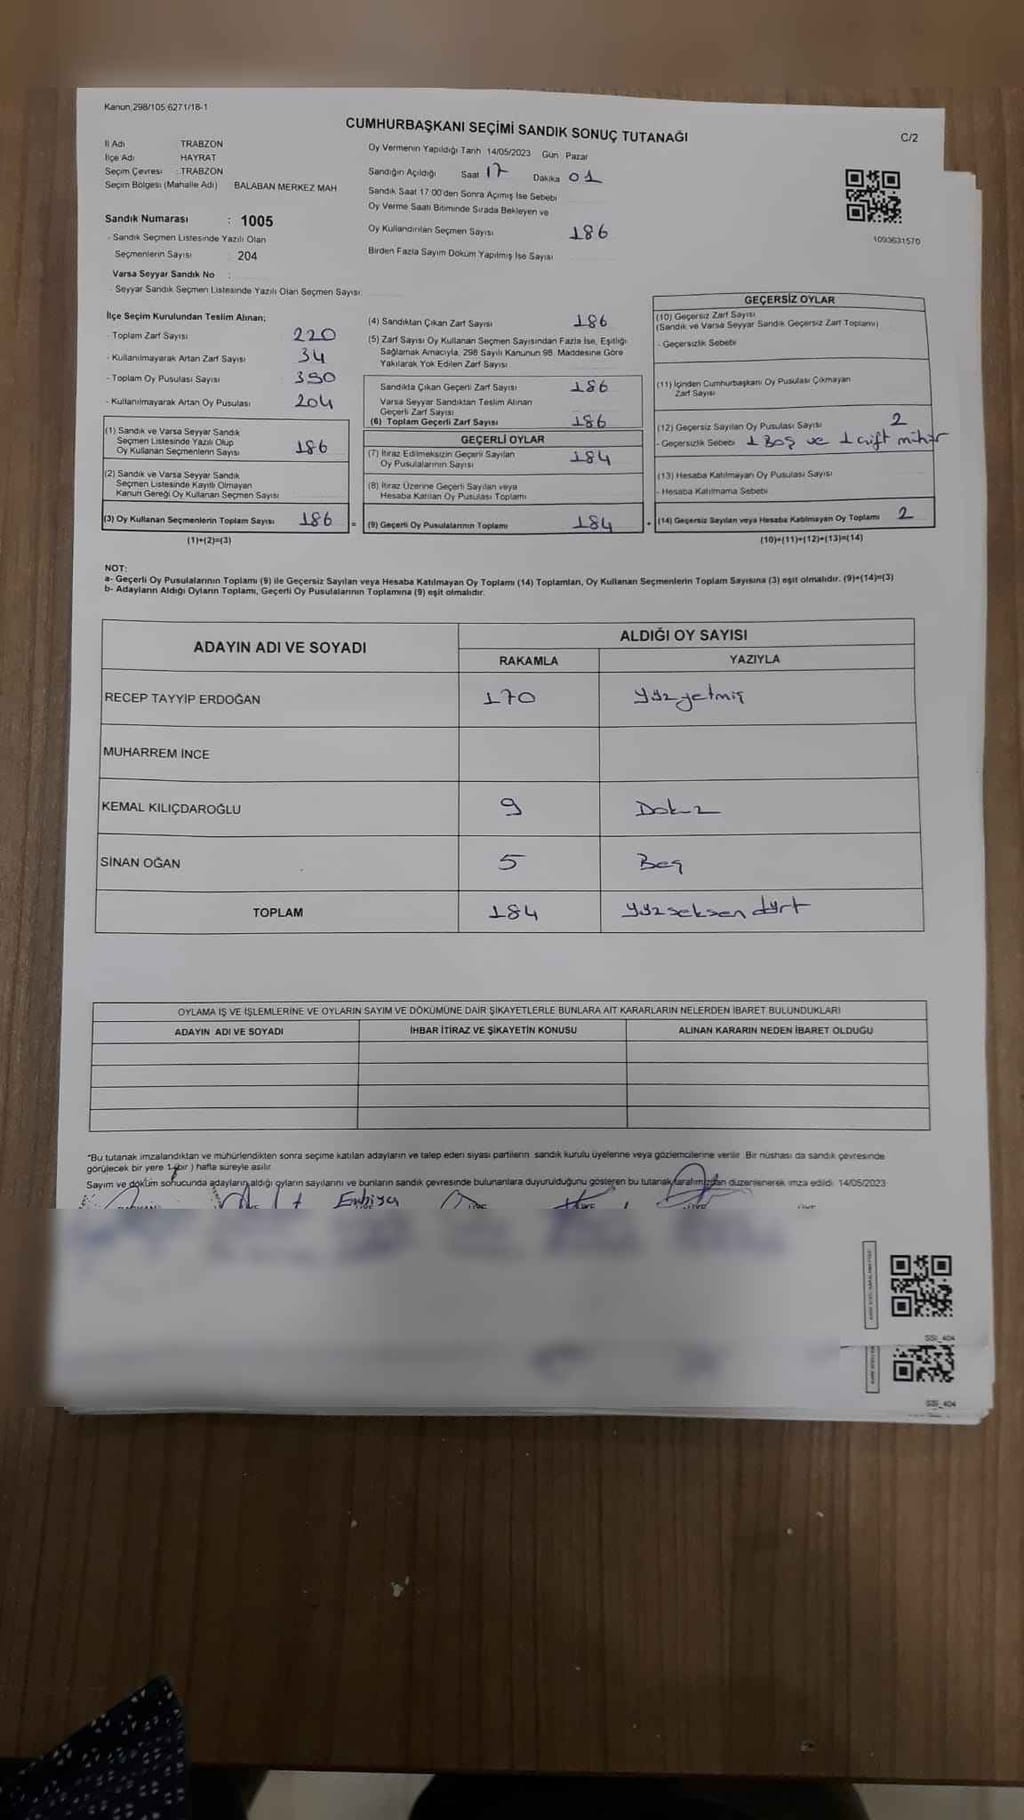 Kanun,298/105,6271/18-1
CUMHURBAŞKANI SEÇİMİ SANDIK SONUÇ TUTANAĞI
C/2
İl Adı TRABZON
İlçe Adı HAYRAT
Seçim Çevresi : TRABZON
Seçim Bölgesi (Mahalle Adı) BALABAN MERKEZ MAH
Sandık Numarası : 1005
- Sandık Seçmen Listesinde Yazılı Olan
Seçmenlerin Sayısı 204
Varsa Seyyar Sandık No :
- Seyyar Sandık Seçmen Listesinde Yazılı Olan Seçmen Sayısı:
Oy Vermenin Yapıldığı Tarih 14/05/2023 Gün Pazar
Sandığın Açıldığı Saat 17 Dakika 01
Sandık Saat 17:00'den Sonra Açımış İse Sebebi
Oy Verme Saati Bitiminde Sırada Bekleyen ve
Oy Kullandırılan Seçmen Sayısı 186
Birden Fazla Sayım Döküm Yapılmış İse Sayısı
1093631570
İlçe Seçim Kurulundan Teslim Alınan;
- Toplam Zarf Sayısı 220
- Kullanılmayarak Artan Zarf Sayısı 34
- Toplam Oy Pusulası Sayısı 390
- Kullanılmayarak Artan Oy Pusulası 204
(1) Sandık ve Varsa Seyyar Sandık
Seçmen Listesinde Yazılı Olup
Oy Kullanan Seçmenlerin Sayısı 186
(2) Sandık ve Varsa Seyyar Sandık
Seçmen Listesinde Kayıtlı Olmayan
Kanun Gereği Oy Kullanan Seçmen Sayısı
(3) Oy Kullanan Seçmenlerin Toplam Sayısı 186 =
(1)+(2)=(3)
(4) Sandıktan Çıkan Zarf Sayısı 186
(5) Zarf Sayısı Oy Kullanan Seçmen Sayısından Fazla İse, Eşitliği
Sağlamak Amacıyla, 298 Sayılı Kanunun 98. Maddesine Göre
Yakılarak Yok Edilen Zarf Sayısı
Sandıkta Çıkan Geçerli Zarf Sayısı 186
Varsa Seyyar Sandıktan Teslim Alınan
Geçerli Zarf Sayısı
(6) Toplam Geçerli Zarf Sayısı 186
GEÇERLİ OYLAR
(7) İtiraz Edilmeksizin Geçerli Sayılan
Oy Pusulalarının Sayısı 184
(8) İtiraz Üzerine Geçerli Sayılan veya
Hesaba Katılan Oy Pusulası Toplamı
(9) Geçerli Oy Pusulalarının Toplamı 184 +
GEÇERSİZ OYLAR
(10) Geçersiz Zarf Sayısı
(Sandık ve Varsa Seyyar Sandık Geçersiz Zarf Toplamı)
- Geçersizlik Sebebi
(11) İçinden Cumhurbaşkanı Oy Pusulası Çıkmayan
Zarf Sayısı
(12) Geçersiz Sayılan Oy Pusulası Sayısı 2
- Geçersizlik Sebebi 1 Boş ve 1 çift mühür
(13) Hesaba Katılmayan Oy Pusulası Sayısı
- Hesaba Katılmama Sebebi
(14) Geçersiz Sayılan veya Hesaba Katılmayan Oy Toplamı 2
(10)+(11)+(12)+(13)=(14)
NOT:
a- Geçerli Oy Pusulalarının Toplamı (9) ile Geçersiz Sayılan veya Hesaba Katılmayan Oy Toplamı (14) Toplamları, Oy Kullanan Seçmenlerin Toplam Sayısına (3) eşit olmalıdır. (9)+(14)=(3)
b- Adayların Aldığı Oyların Toplamı, Geçerli Oy Pusulalarının Toplamına (9) eşit olmalıdır.
ADAYIN ADI VE SOYADI ALDIĞI OY SAYISI
RAKAMLA YAZIYLA
RECEP TAYYİP ERDOĞAN 170 yüzyetmiş
MUHARREM İNCE
KEMAL KILIÇDAROĞLU 9 Dokuz
SİNAN OĞAN 5 Beş
TOPLAM 184 yüzseksen dört
OYLAMA İŞ VE İŞLEMLERİNE VE OYLARIN SAYIM VE DÖKÜMÜNE DAİR ŞİKAYETLERLE BUNLARA AİT KARARLARIN NELERDEN İBARET BULUNDUKLARI
ADAYIN ADI VE SOYADI İHBAR İTİRAZ VE ŞİKAYETİN KONUSU ALINAN KARARIN NEDEN İBARET OLDUĞU
"Bu tutanak imzalandıktan ve mühürlendikten sonra seçime katılan adayların ve talep eden siyasi partilerin sandık kurulu üyelerine veya gözlemcilerine verilir. Bir nüshası da sandık çevresinde
görülecek bir yere 1 (bir) hafta süreyle asılır.
Sayım ve döküm sonucunda adayların aldığı oyların sayılarını ve bunların sandık çevresinde bulunanlara duyurulduğunu gösteren bu tutanak tarafımızdan düzenlenerek imza edildi. 14/05/2023
SSİ_404
SSİ_404